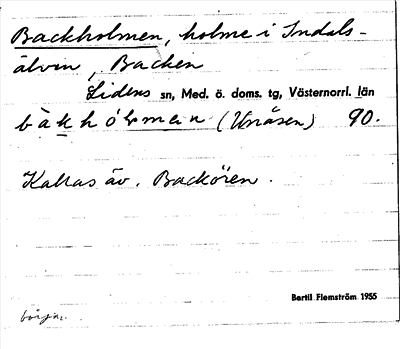 Backholmen, holme i Indals-
älven, Backen
Lidens sn, Med. ö. doms. tg, Västernorrl. län
bàkhólmen (Unåsen) 90.
Kallas äv. Backören.
Bertil Flemström 1955